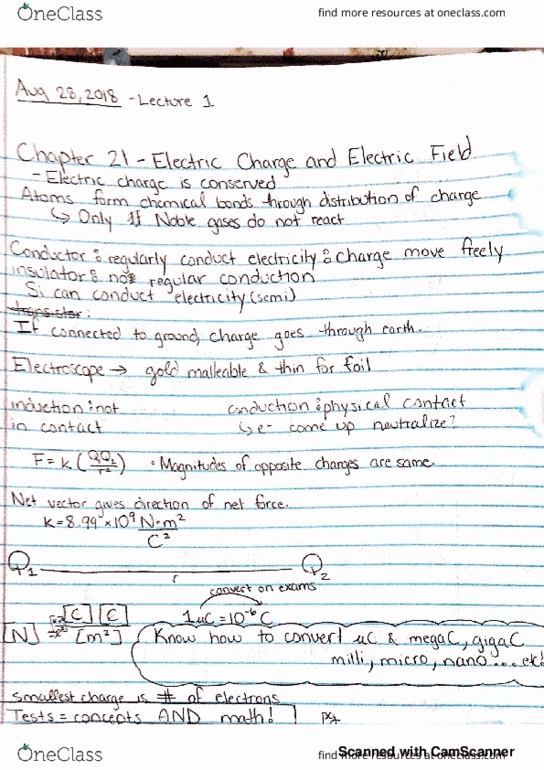 OneClass
find more resources at oneclass.com
Aug 28, 2018 - Lecture 1
Chapter 21 - Electric Charge and Electric Field
- Electric charge is conserved
Atoms form chemical bonds through distribution of charge
↳ Only Noble gases do not react
Conductor: regularly conduct electricity: charge move freely
insulator: not regular conduction
Si can conduct electricity (semi)
transistor:
If connected to ground, charge goes through earth.
Electroscope → gold malleable & thin for foil
induction: not conduction: physical contact
in contact ↳ e- come up neutralize?
F = k (QQ₂/r²) • Magnitudes of opposite charges are same.
Net vector gives direction of net force.
k = 8.99 × 10⁹ N·m²/C²
Q₁ r Q₂
convert on exams
[C] [C] 1 μC = 10⁻⁶ C
[N] = [m²] Know how to convert μC & megaC, gigaC
milli, micro, nano ... etc!
smallest charge is # of electrons
Tests = concepts AND math!
OneClass
find more resources at oneclass.com
Scanned with CamScanner